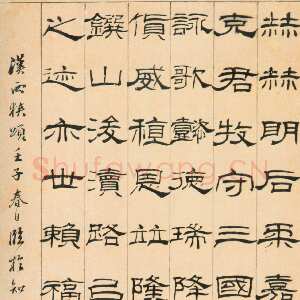 赫赫明后柔嘉
克君牧守三國
詠歌懿德瑞降
貨威稙恩竝隆
鐉山浚瀆路㠯
之迹亦世賴福
漢西狹頌壬子春日臨於知
Shufawang.CN